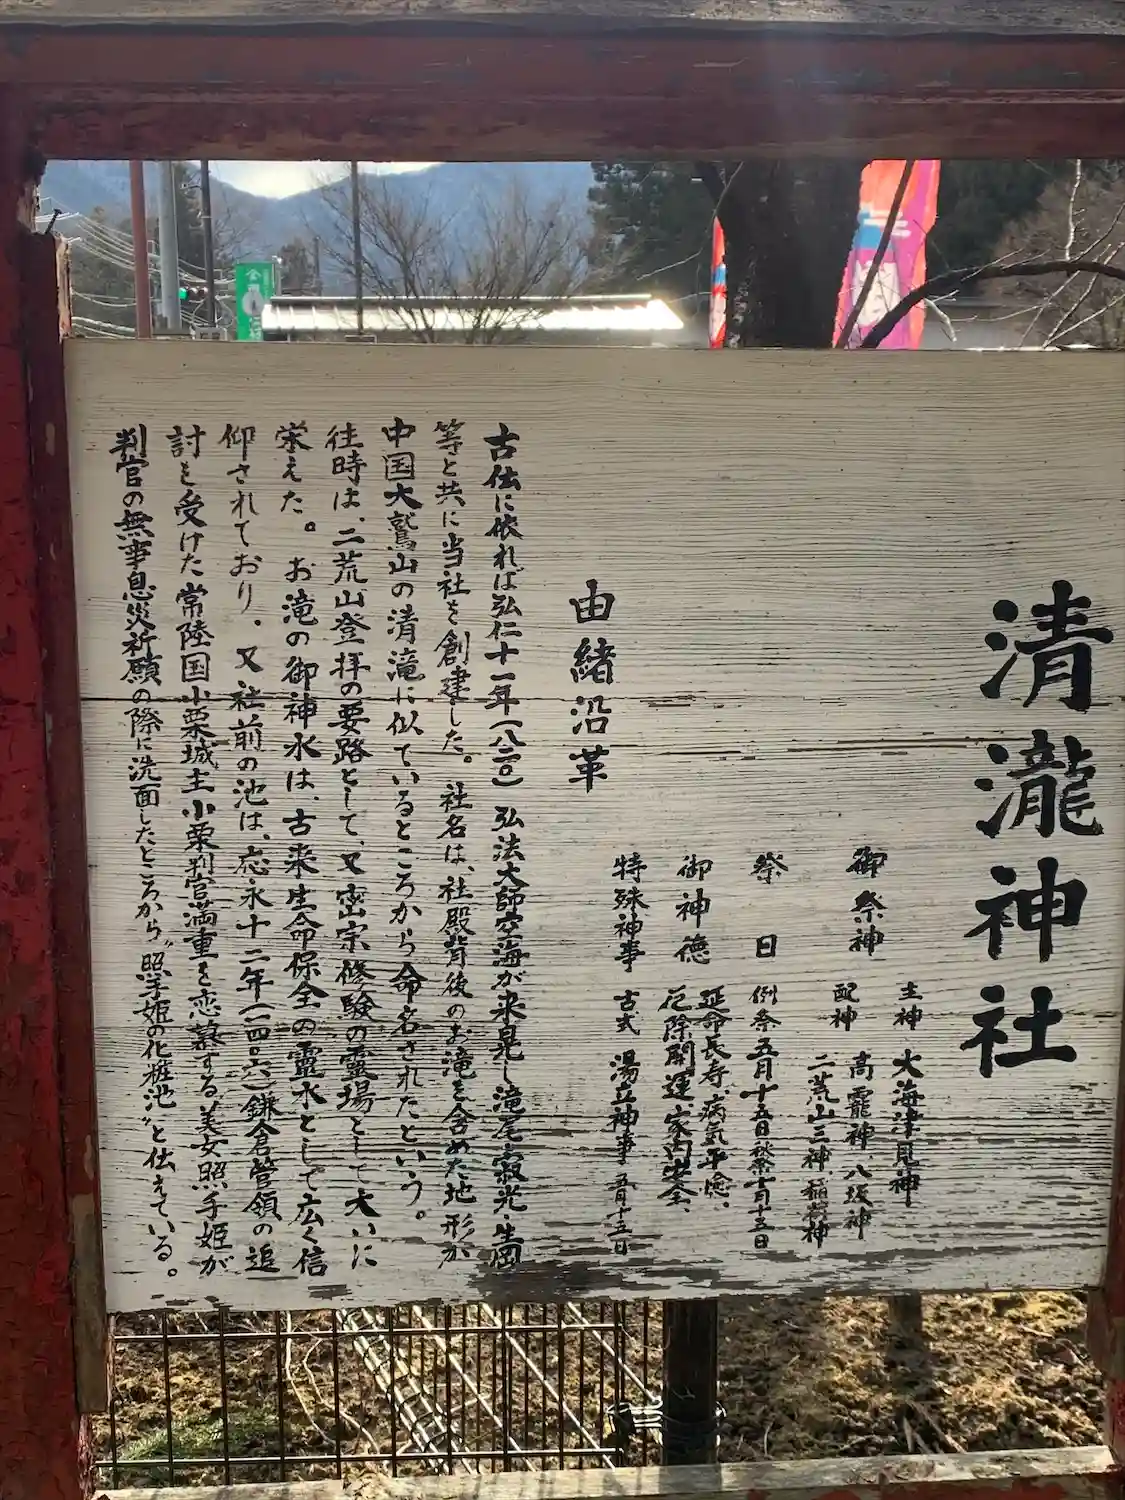 清瀧神社
御祭神
主神 大海津見神
配神 高龗神、八坂神
二荒山三神、稲荷神
祭日 例祭五月十五日秋祭十月十五日
御神徳 延命長寿、病気平癒、
厄除開運、家内安全、
特殊神事 古式 湯立神事 五月十五日
由緒沿革
古伝に依れば弘仁十一年(八二〇) 弘法大師空海が来晃し滝尾・寂光・生岡
等と共に当社を創建した。社名は、社殿背後のお滝を含めた地形が
中国大鷲山の清滝に似ているところから命名されたという。
往時は、二荒山登拝の要路として、又密宗修験の霊場として大いに
栄えた。お滝の御神水は、古来生命保全の霊水として広く信
仰されており、又社前の池は、応永十二年(一四〇六)鎌倉管領の追
討を受けた常陸国小栗城主小栗判官満重を恋慕する美女照手姫が
判官の無事息災祈願の際に洗面したところから〝照手姫の化粧池〟と伝えている。